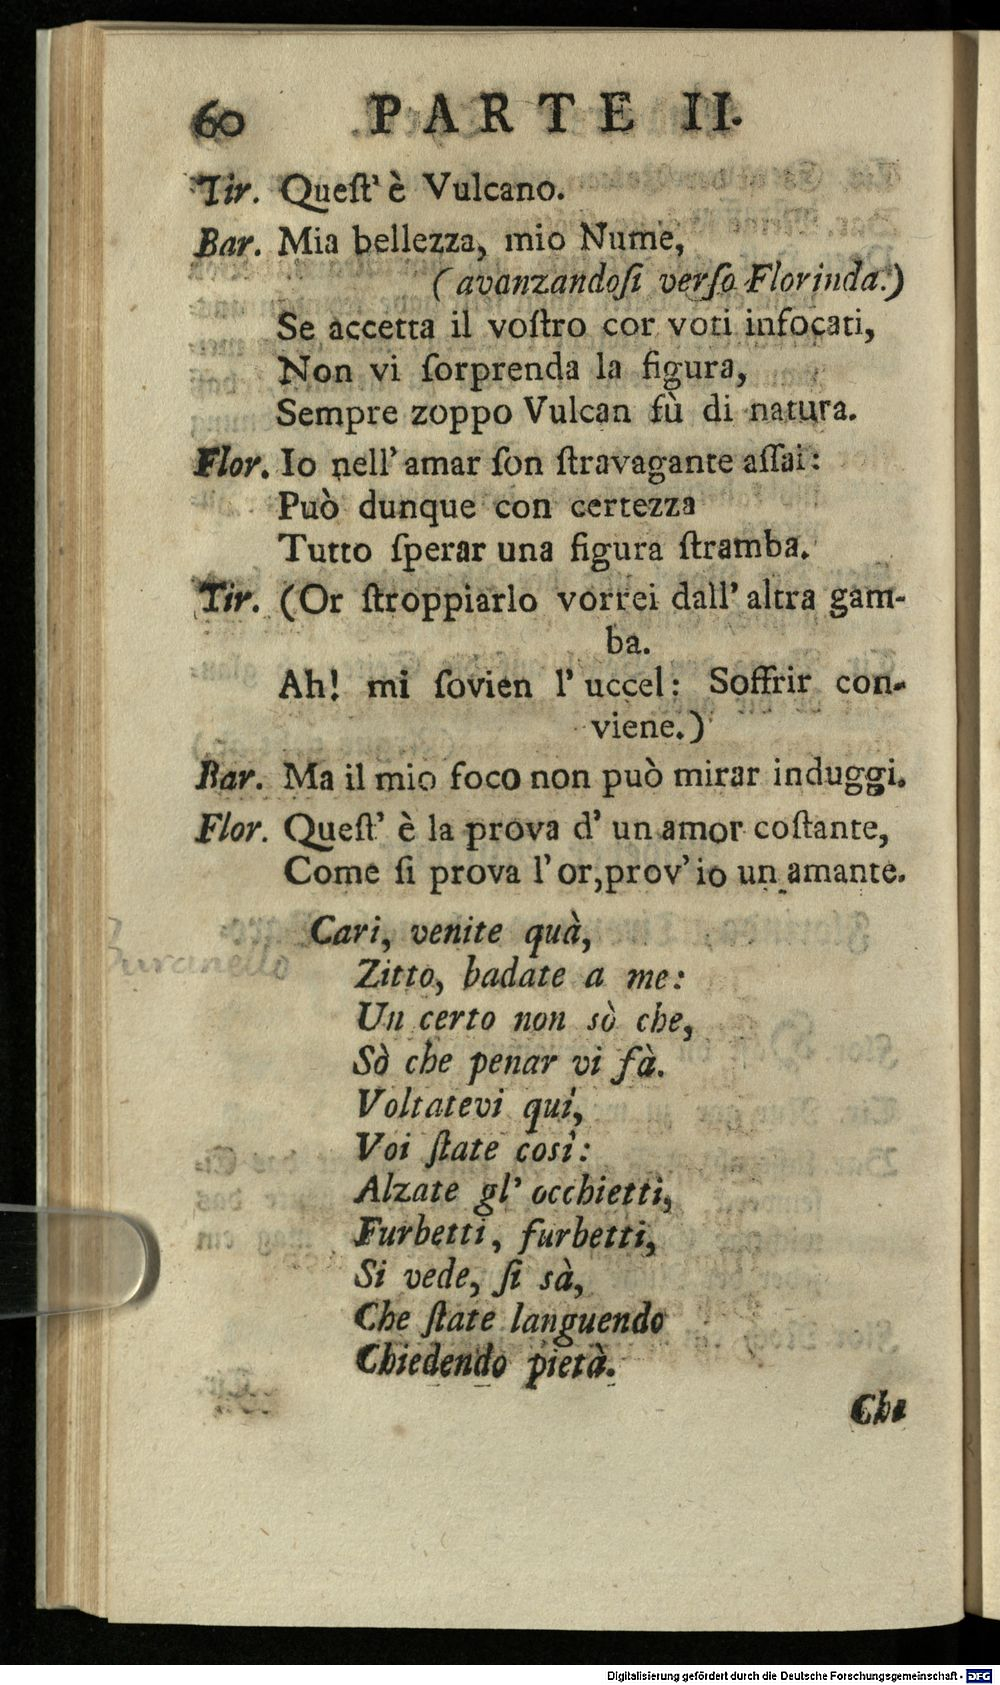 60 PARTE II.
Tir. Queſt' è Vulcano.
Bar. Mia bellezza, mio Nume,
(avanzandoſi verſo Florinda.)
Se accetta il voſtro cor voti infocati,
Non vi ſorprenda la figura,
Sempre zoppo Vulcan fù di natura.
Flor. Io nell' amar ſon ſtravagante aſſai:
Può dunque con certezza
Tutto ſperar una figura ſtramba.
Tir. (Or ſtroppiarlo vorrei dall' altra gam-
ba.
Ah! mi ſovien l' uccel: Soffrir con-
viene.)
Bar. Ma il mio foco non può mirar induggi.
Flor. Queſt' è la prova d' un amor coſtante,
Come ſi prova l' or, prov' io un amante.
Cari, venite quà,
Buranello
Zitto, badate a me:
Un certo non sò che,
Sò che penar vi fà.
Voltatevi quì,
Voi ſtate così:
Alzate gl' occhietti,
Furbetti, furbetti,
Si vede, ſi sà,
Che ſtate languendo
Chiedendo pietà.
Che
Digitalisierung gefördert durch die Deutsche Forschungsgemeinschaft - DFG